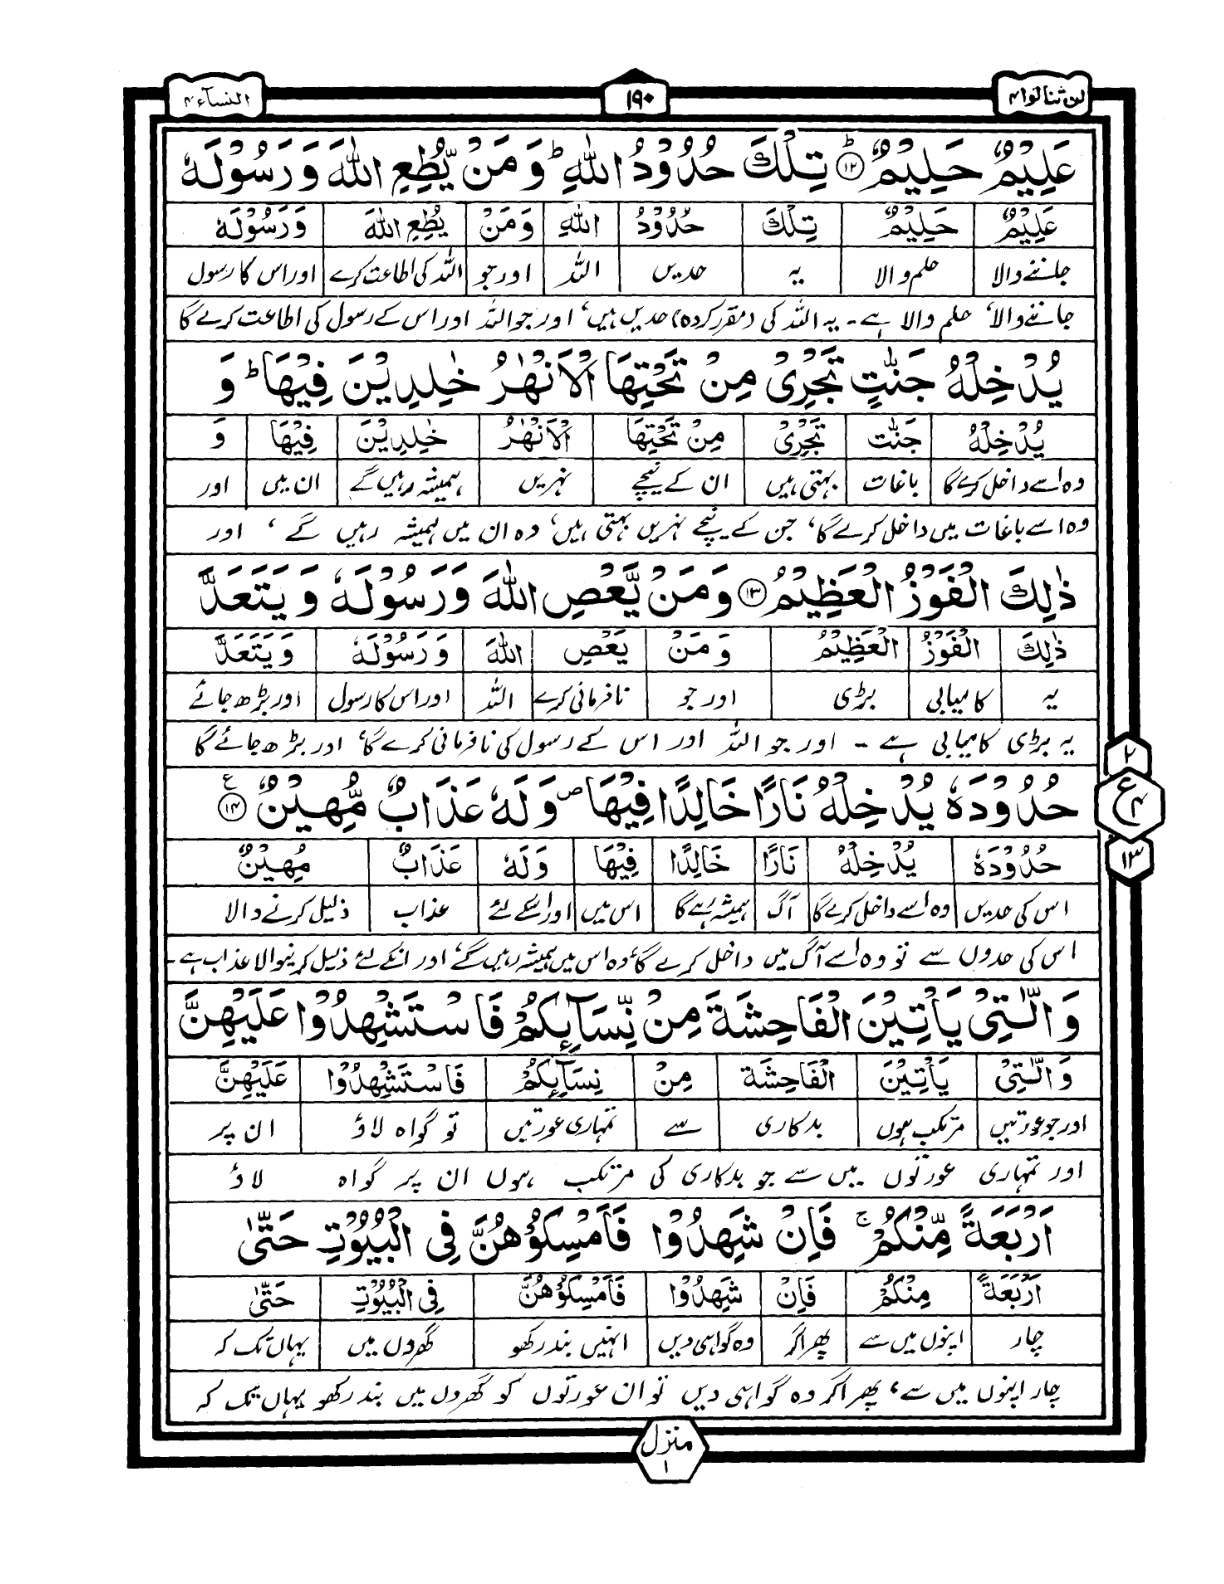 لن تنالوا ۴
۱۹۰
النسآء ۴
عَلِيْمٌ حَلِيْمٌ ؕ‏﴿۱۲﴾ تِلْكَ حُدُوْدُ اللّٰهِ ؕ وَ مَنْ يُّطِعِ اللّٰهَ وَ رَسُوْلَهٗ
عَلِيْمٌ حَلِيْمٌ تِلْكَ حُدُوْدُ اللّٰهِ وَ مَنْ يُطِعِ اللّٰهَ وَ رَسُوْلَهٗ
جاننے والا حلم والا یہ حدیں اللہ اور جو اللہ کی اطاعت کرے اور اس کا رسول
جاننے والا، حلم والا ہے۔ یہ اللہ کی (مقرر کردہ) حدیں ہیں، اور جو اللہ اور اس کے رسول کی اطاعت کرے گا
يُدْخِلْهُ جَنّٰتٍ تَجْرِىْ مِنْ تَحْتِهَا الْاَنْهٰرُ خٰلِدِيْنَ فِيْهَا ؕ وَ
يُدْخِلْهُ جَنّٰت تَجْرِىْ مِنْ تَحْتِهَا الْاَنْهٰرُ خٰلِدِيْنَ فِيْهَا وَ
وہ اسے داخل کرے گا باغات بہتی ہیں ان کے نیچے نہریں ہمیشہ رہیں گے ان میں اور
وہ اسے باغات میں داخل کرے گا، جن کے نیچے نہریں بہتی ہیں، وہ ان میں ہمیشہ رہیں گے ، اور
ذٰلِكَ الْفَوْزُ الْعَظِيْمُ ﴿۱۳﴾ وَ مَنْ يَّعْصِ اللّٰهَ وَ رَسُوْلَهٗ وَ يَتَعَدَّ
ذٰلِكَ الْفَوْزُ الْعَظِيْمُ وَ مَنْ يَعْصِ اللّٰهَ وَ رَسُوْلَهٗ وَ يَتَعَدَّ
یہ کامیابی بڑی اور جو نافرمانی کرے اللہ اور اس کا رسول اور بڑھ جائے
یہ بڑی کامیابی ہے ۔ اور جو اللہ اور اس کے رسول کی نافرمانی کرے گا، اور بڑھ جائے گا
حُدُوْدَهٗ يُدْخِلْهُ نَارًا خَالِدًا فِيْهَا ۪ وَ لَهٗ عَذَابٌ مُّهِيْنٌ ﴿۱۴﴾ ع
۲
ع ۴
۱۳
حُدُوْدَهٗ يُدْخِلْهُ نَارًا خَالِدًا فِيْهَا وَ لَهٗ عَذَابٌ مُهِيْنٌ
اس کی حدیں وہ اسے داخل کرے گا آگ ہمیشہ رہے گا اس میں اور اسکے لئے عذاب ذلیل کرنے والا
اس کی حدوں سے تو وہ اسے آگ میں داخل کرے گا، وہ اس میں ہمیشہ رہیں گے، اور انکے لئے ذلیل کرنیوالا عذاب ہے۔
وَ الّٰتِىْ يَاْتِيْنَ الْفَاحِشَةَ مِنْ نِّسَآئِكُمْ فَاسْتَشْهِدُوْا عَلَيْهِنَّ
وَ الّٰتِىْ يَاْتِيْنَ الْفَاحِشَة مِنْ نِسَآئِكُمْ فَاسْتَشْهِدُوْا عَلَيْهِنَّ
اور جو عورتیں مرتکب ہوں بدکاری سے تمہاری عورتیں تو گواہ لاؤ ان پر
اور تمہاری عورتوں میں سے جو بدکاری کی مرتکب ہوں ان پر گواہ لاؤ
اَرْبَعَةً مِّنْكُمْ ۚ فَاِنْ شَهِدُوْا فَاَمْسِكُوْهُنَّ فِى الْبُيُوْتِ حَتّٰى
اَرْبَعَةً مِنْكُمْ فَاِنْ شَهِدُوْا فَاَمْسِكُوْهُنَّ فِى الْبُيُوْتِ حَتّٰى
چار اپنوں میں سے پھر اگر وہ گواہی دیں انہیں بند رکھو گھروں میں یہاں تک کہ
چار اپنوں میں سے، پھر اگر وہ گواہی دیں تو ان عورتوں کو گھروں میں بند رکھو یہاں تک کہ
منزل ۱